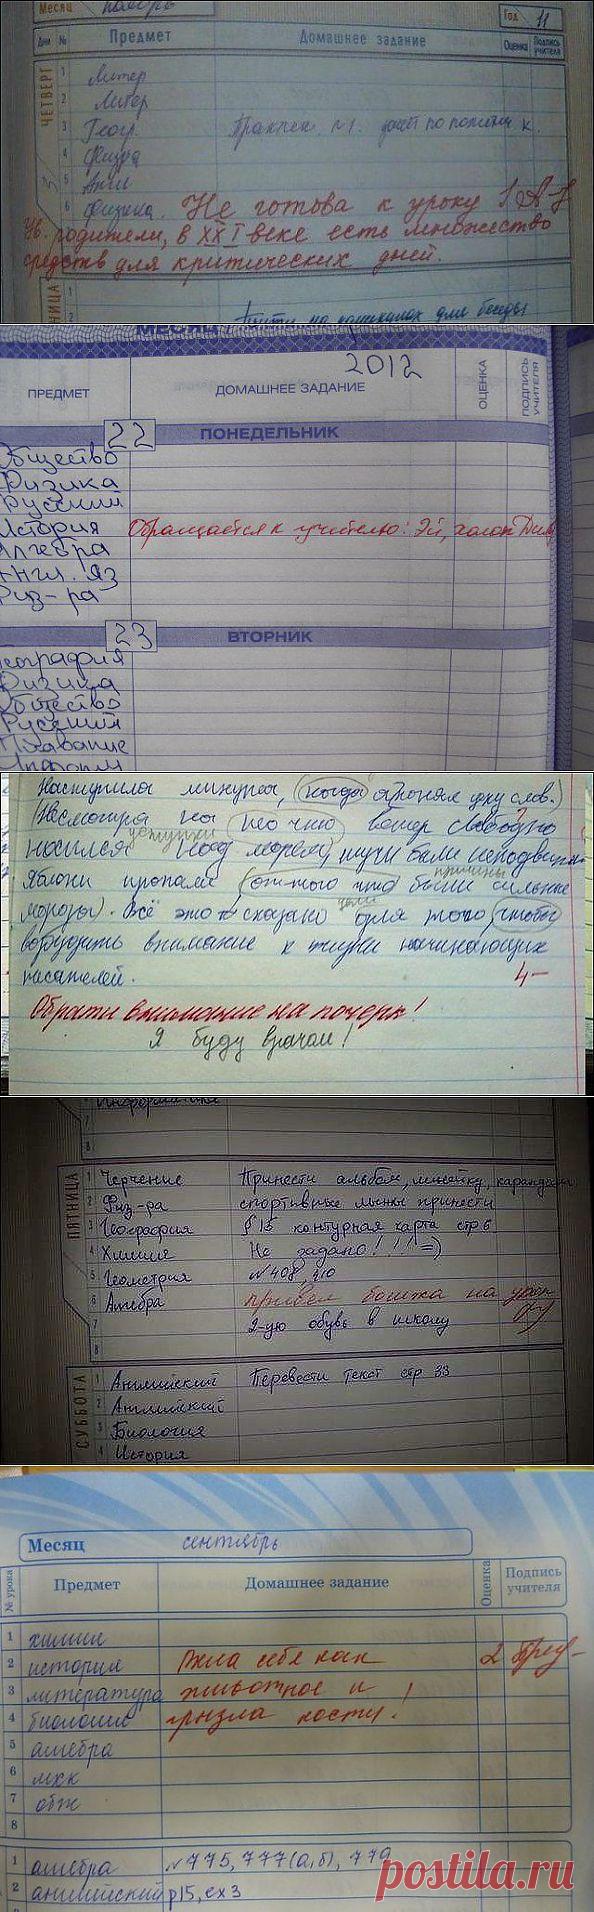 Месяц ноябрь
Год 11
Дни № Предмет Домашнее задание Оценка Подпись учителя
ЧЕТВЕРГ
1 Литер
2 Литер
3 Геогр. Практич. №1. по политич к.
4 Физра
5 Англ
6 Физика. Не готова к уроку
Ув. родители, в XXI веке есть множество
средств для критических дней.
1
2 для беседы
МЕСЯЦ
2012
ПРЕДМЕТ ДОМАШНЕЕ ЗАДАНИЕ ОЦЕНКА ПОДПИСЬ УЧИТЕЛЯ
22 ПОНЕДЕЛЬНИК
Общество
Физика
Русский
История Обращается к учителю: Эй, холоп
Алгебра
Англ. яз
Физ-ра
23 ВТОРНИК
География
Физика
Общество
Русский
Плавание
Наступила минута, когда я понял цену слов.
Несмотря на
носился над морем, тучи были неподвижны
уступки
Яблони пропали оттого что были сильные
причины
морозы). Всё это сказано для того чтобы
цели
возбудить внимание к жизни начинающих
писателей.
4-
Обрати внимание на почерк!
Я буду врачом!
Информатика
7
8
ПЯТНИЦА
1 Черчение Принести альбом, линейку, карандаш
2 Физ-ра спортивные лыжи принести
3 География § 15 контурная карта стр 6
4 Химия Не задано!!!! =)
5 Геометрия №408, 410
6 Алгебра привёл бомжа на урок
7 2-ую обувь в школу
8
СУББОТА
1 Английский Перевести текст стр 33
2 Английский
3 Биология
4 История
Месяц сентябрь
№ урока Предмет Домашнее задание Оценка Подпись учителя
1 химия
2 история Вела себя как 2
3 литература животное и
4 биология грызла кости!
5 алгебра
6 мхк
7 обж
8
1 алгебра №775, 777(а,б), 779
2 английский р15, ех3
postila.ru